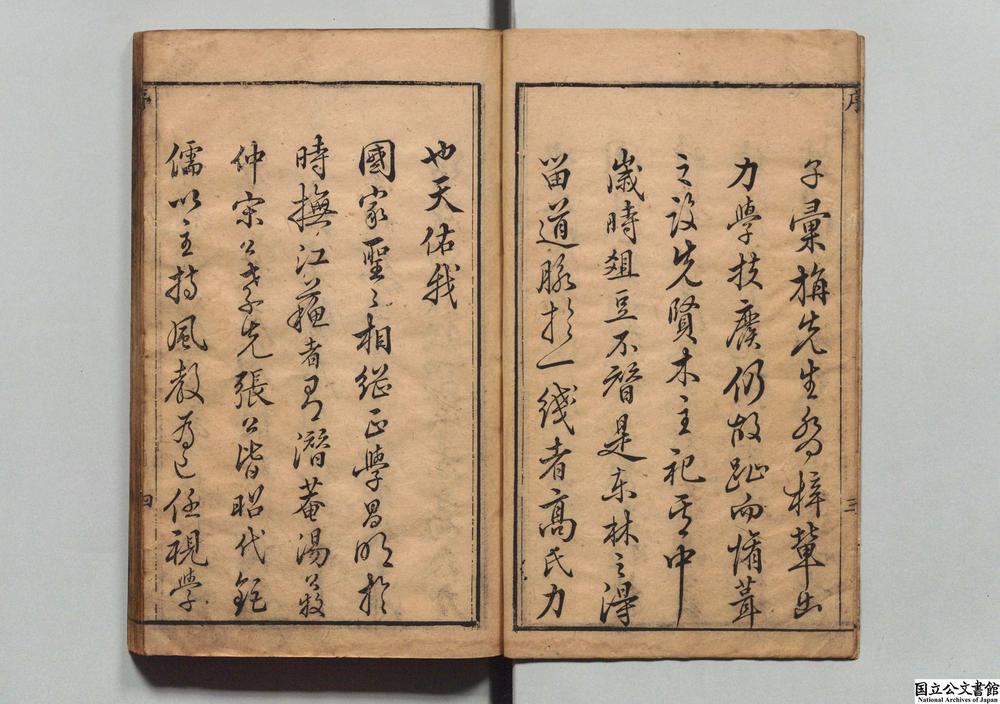 序
三
子彙旃先生喬梓輩出
力學扶廢仍故趾而脩葺
之設先賢木主祀其中
歲時俎豆不替是東林之得
留道脉於一綫者高氏力
也天佑我
國家聖聖相繼正學昌明於
時撫江蘇者有潛菴湯公荔
仲宋公孝先張公皆昭代鉅
儒以主持風教為己任視學
序
四
国立公文書館
National Archives of Japan